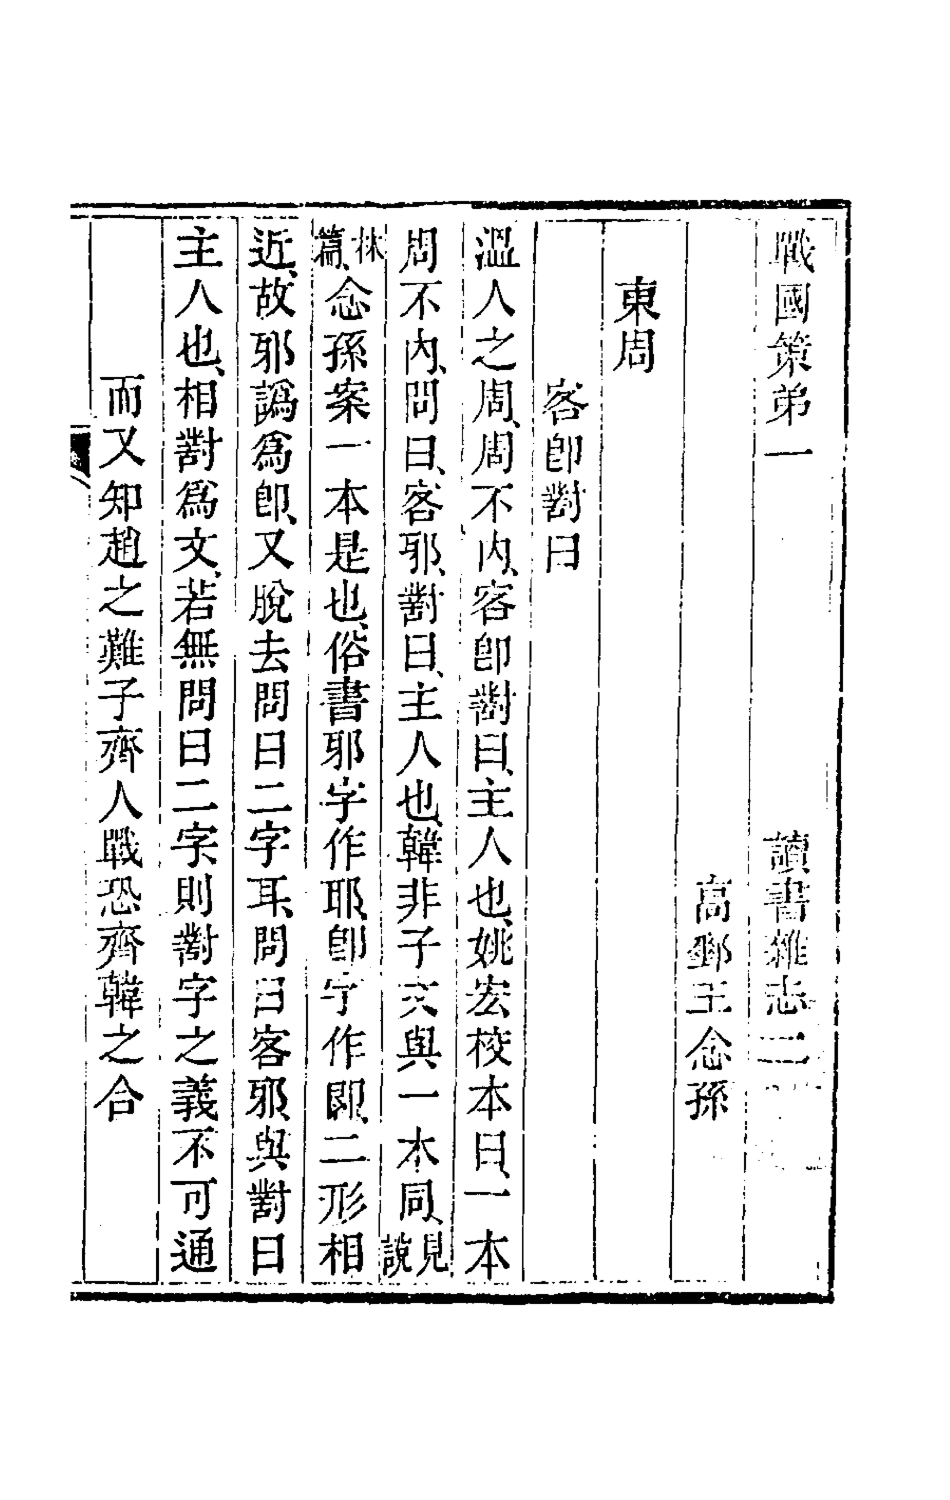 戰國策弟一　讀書雜志二
高郵王念孫
東周
客卽對曰
溫人之周、周不內、客卽對曰、主人也、姚宏校本曰、一本
周不內、問曰、客耶、對曰、主人也、韓非子文與一本同、見說
林篇、念孫案一本是也、俗書邪字作耶、卽字作即、二形相
近、故邪譌爲卽、又脫去問曰二字耳、問曰客邪、與對曰
主人也、相對爲文、若無問曰二字、則對字之義不可通
而又知趙之難子齊人戰恐齊韓之合